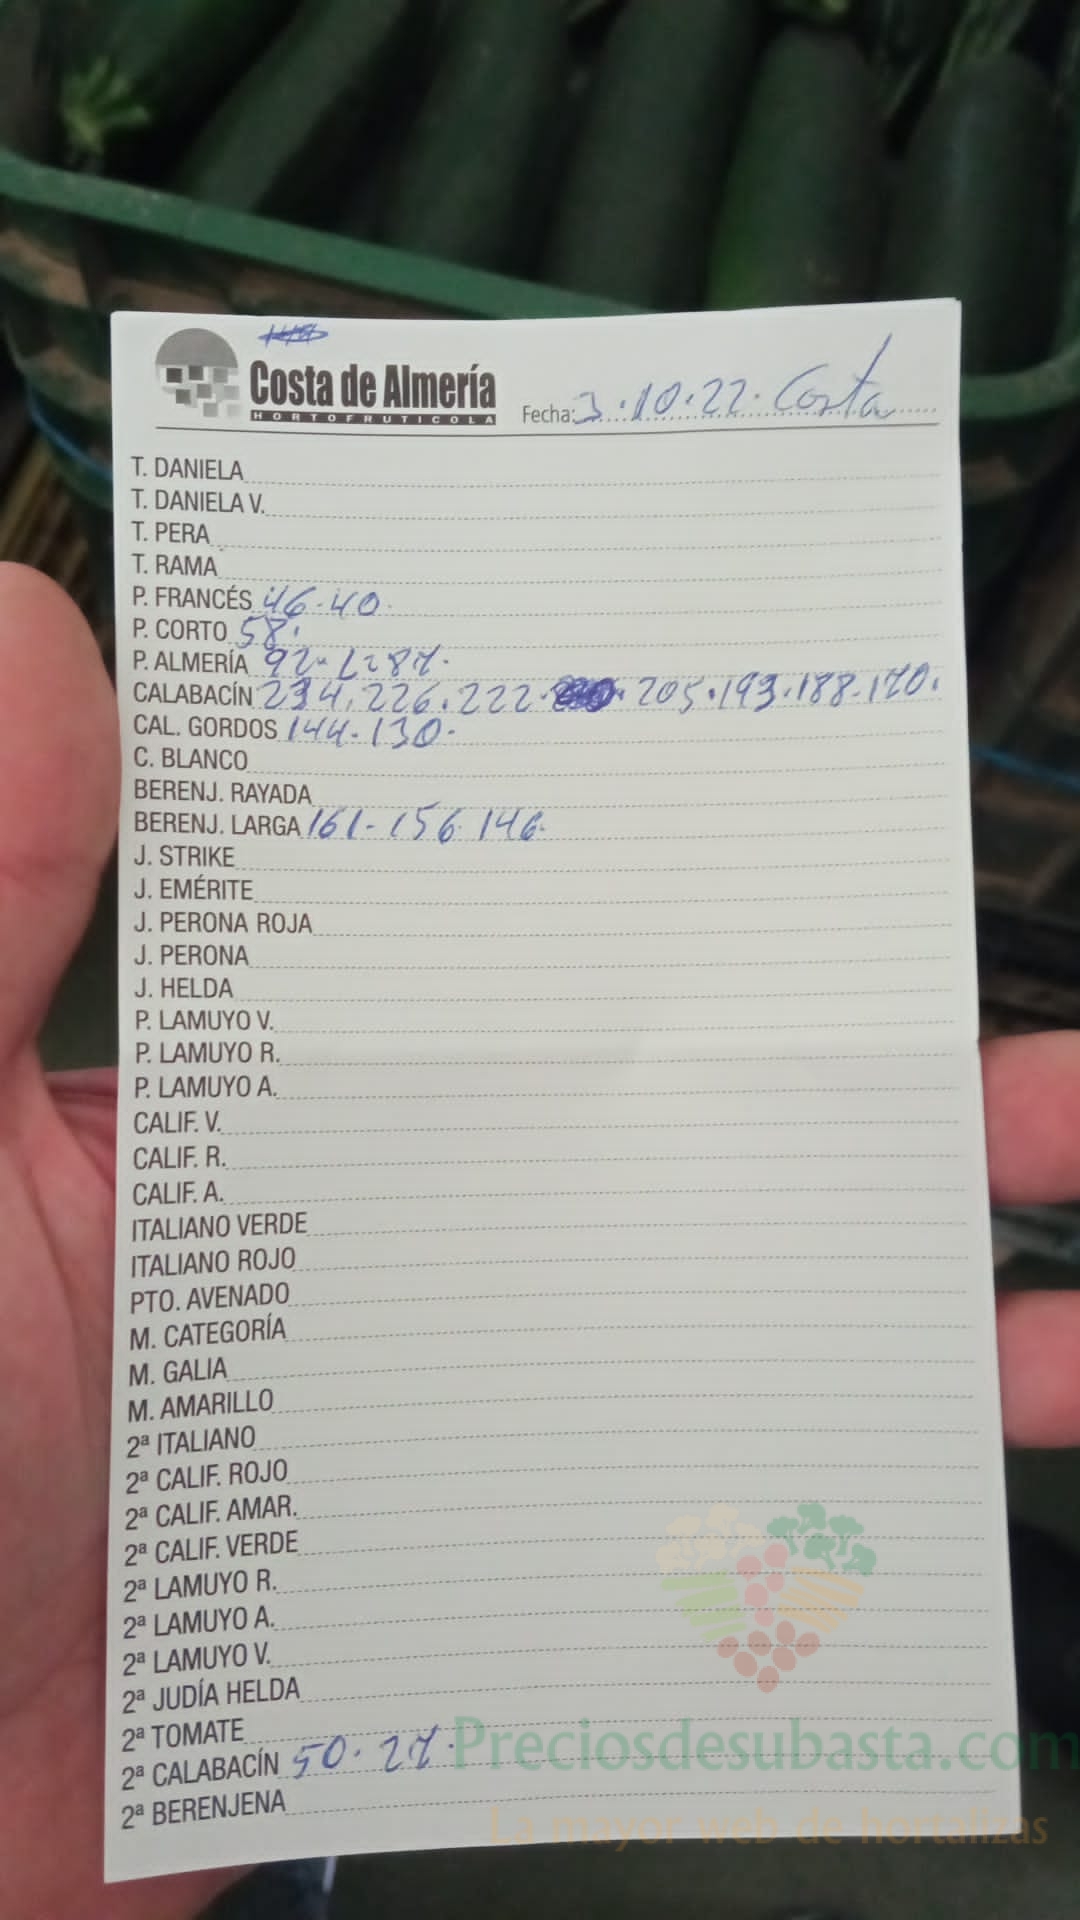 Costa de Almería
HORTOFRUTICOLA
Fecha: 3.10.22. Costa
T. DANIELA
T. DANIELA V.
T. PERA
T. RAMA
P. FRANCÉS 46.40.
P. CORTO 58.
P. ALMERÍA 92- 87.
CALABACÍN 234.226.222. 205.193.188.170.
CAL. GORDOS 144-130.
C. BLANCO
BERENJ. RAYADA
BERENJ. LARGA 161-156.146.
J. STRIKE
J. EMÉRITE
J. PERONA ROJA
J. PERONA
J. HELDA
P. LAMUYO V.
P. LAMUYO R.
P. LAMUYO A.
CALIF. V.
CALIF. R.
CALIF. A.
ITALIANO VERDE
ITALIANO ROJO
PTO. AVENADO
M. CATEGORÍA
M. GALIA
M. AMARILLO
2ª ITALIANO
2ª CALIF. ROJO
2ª CALIF. AMAR.
2ª CALIF. VERDE
2ª LAMUYO R.
2ª LAMUYO A.
2ª LAMUYO V.
2ª JUDÍA HELDA
2ª TOMATE
2ª CALABACÍN 50.27.
2ª BERENJENA
Preciosdesubasta.com
La mayor web de hortalizas